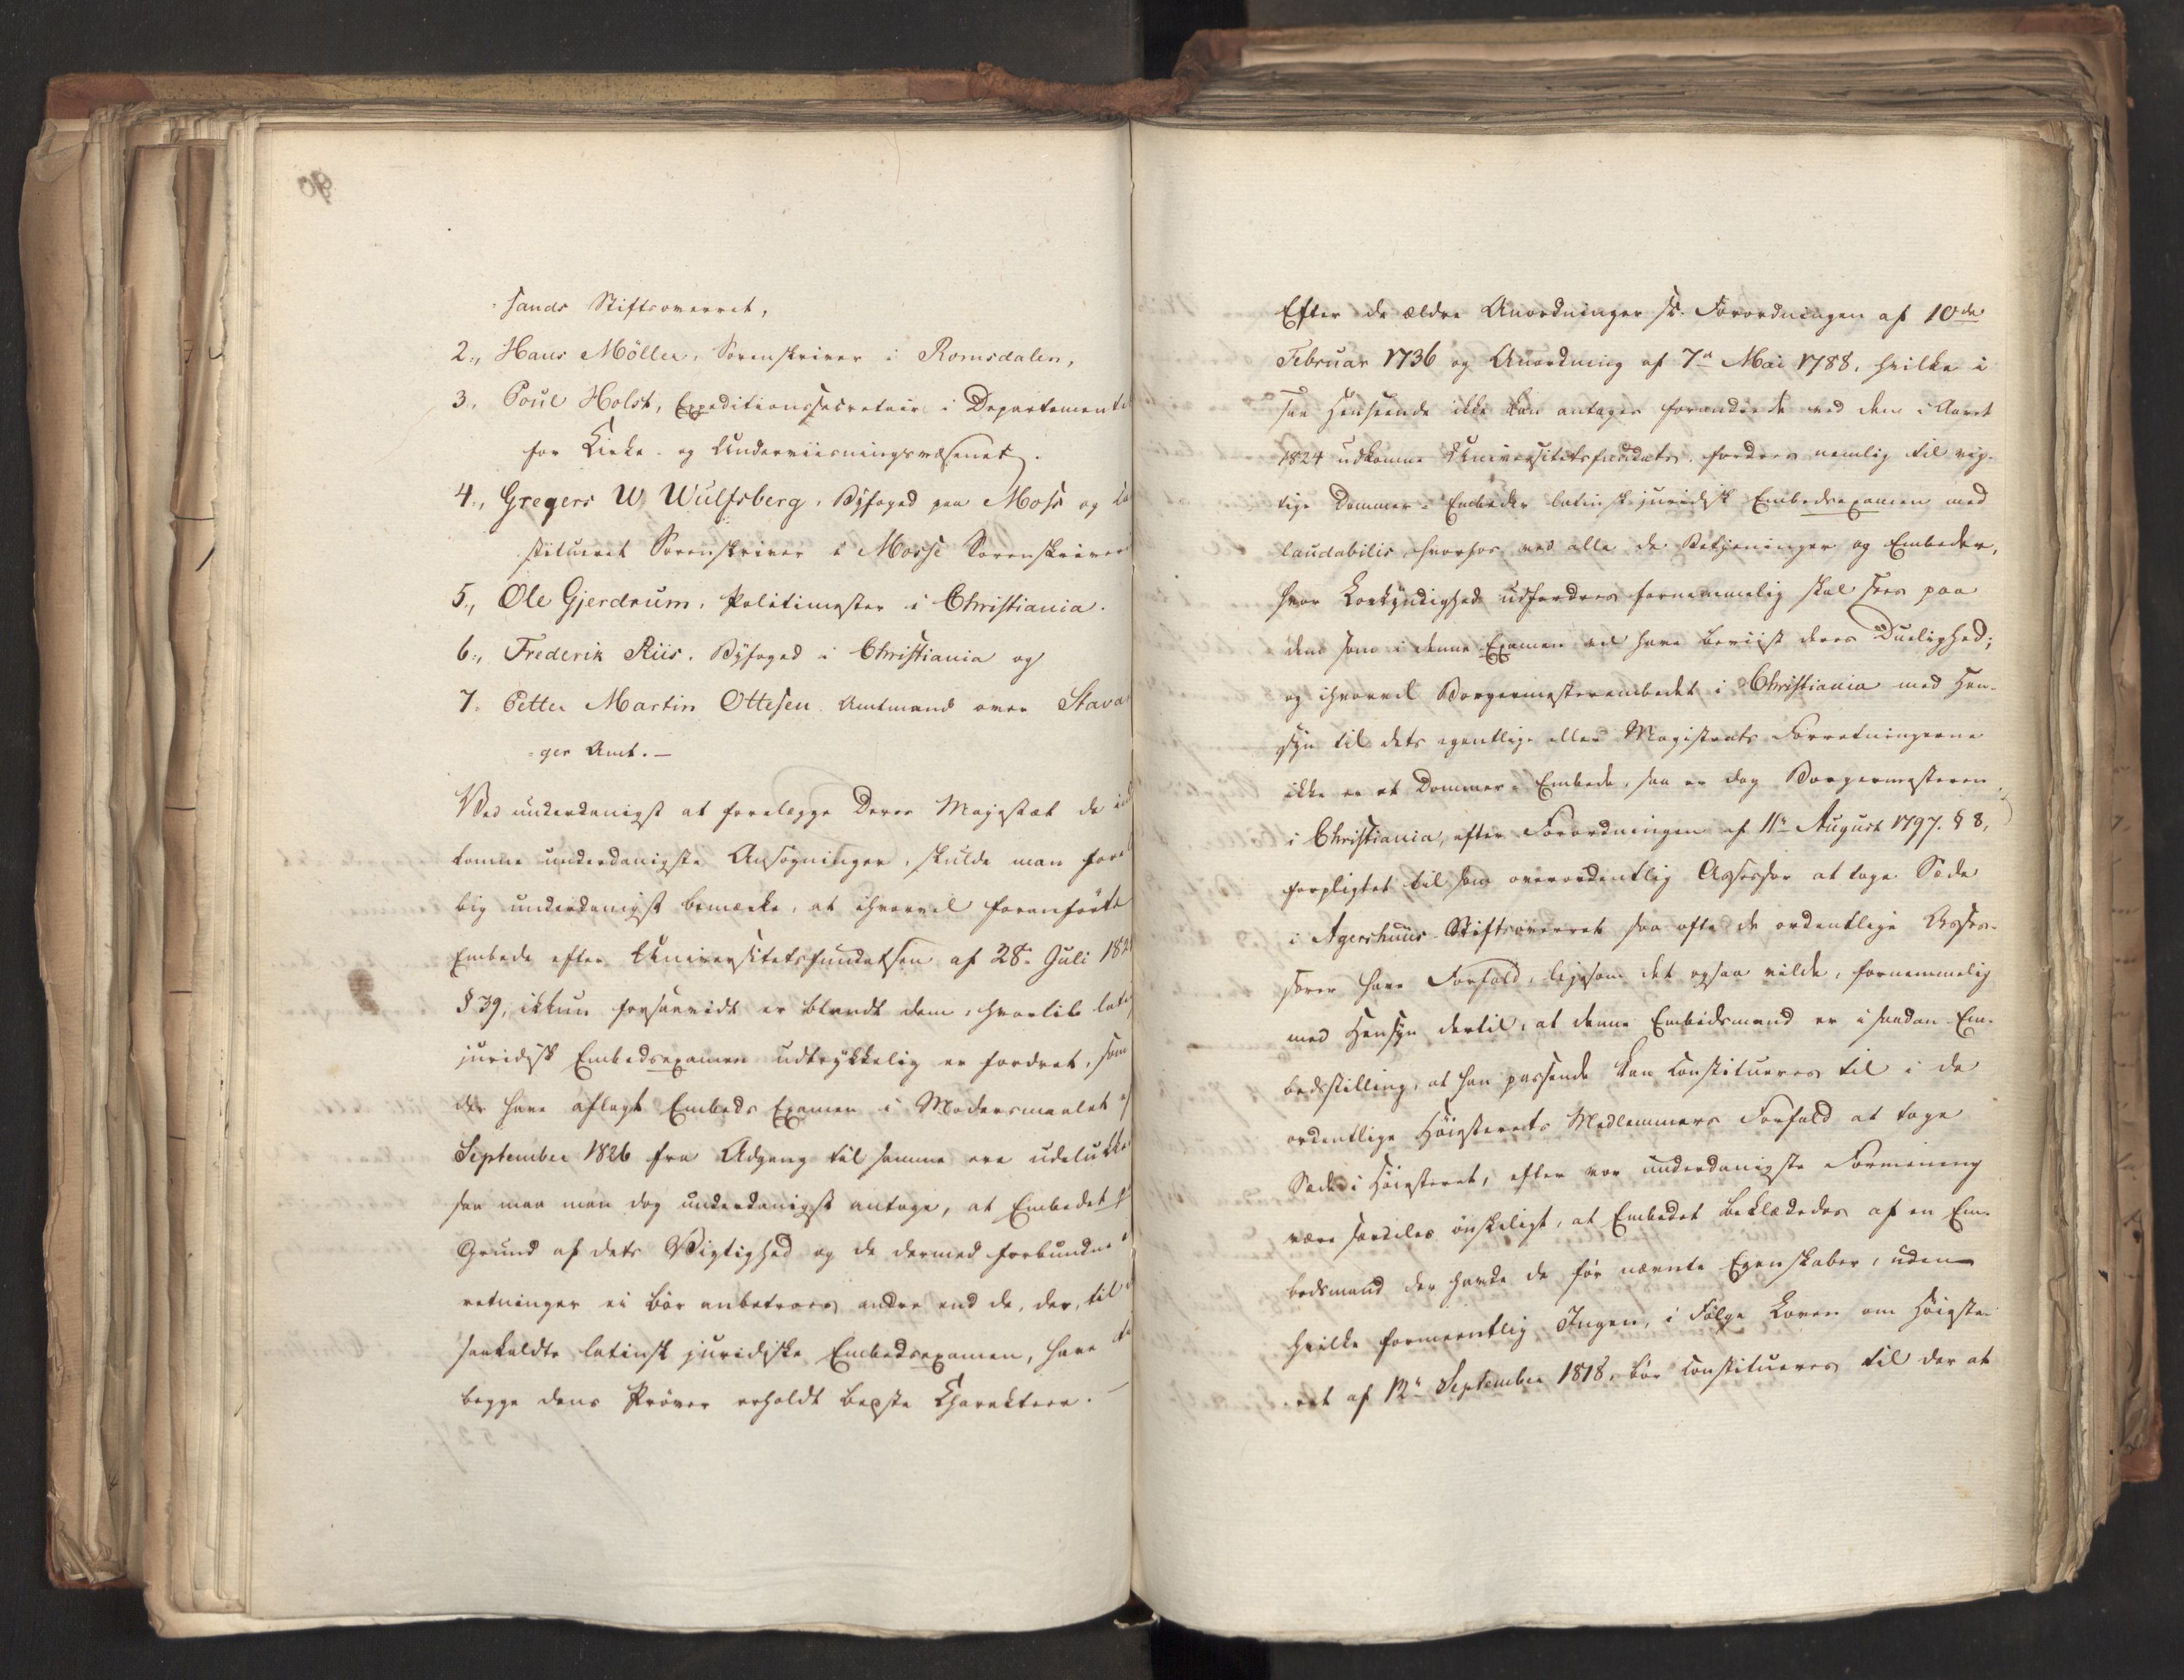 sands Stiftsoverret,
2., Hans Möller, Sorenskriver i Romsdalen,
3., Poul Holst, Expeditionssecretair i Departementet
for Kirke- og Underviisningsvæsenet.
4., Gregers W. Wulfsberg, Byfoged paa Moss og
stitueret Sorenskriver i Mosse Sorenskriver
5., Ole Gjerdrum, Politimester i Christiania.
6., Frederik Riis, Byfoged i Christiania og
7. Petter Martin Ottesen Amtmand over Stavan
=ger Amt.—
Ved underdanigst at forelægge Deres Majestæt de ind
komne underdanigste Ansøgninger, skulde man fore
big underdanigst bemærke, at ihvorvel foranførte
Embede efter Universitetsfundatsen af 28. Juli 182
§ 39, ikkun forsaavidt er blandt dem, hvortil lati
juridisk Embedsexamen udtrykkelig er fordret, som
der have aflagt Embeds Examen i Modersmaalet ef
September 1826 fra Adgang til samme ere udelukke
saa maa man dog underdanigst antage, at Embedet p
Grund af dets Vigtighed og de dermed forbundne
retninger ei bør anbetroes andre end de, der, til
saakaldte latinsk juridiske Embedsexamen, have
begge dens Prøver erholdt bedste Charakteer.—
Efter de ældre Anordninger fr. Forordningen af 10de
Februar 1736 og Anordning af 7de Mai 1788, hvilke i
saa Henseende ikke kan antages forandrede ved den i Aaret
1824 udkomne Universitetsfundats, fordres nemlig til vig-
tige Dommer-Embeder latinsk juridisk Embedsexamen med
laudabilis, hvorhos ved alle de Betjeninger og Embeder,
hvor Lovkyndighed udfordres fornemmelig skal sees paa
dem som i denne Examen vel have beviist deres Duelighed;
og ihvorvel Borgermesterembedet i Christiania med Hen-
syn til dets egentlige eller Magistrats Forretningerne
ikke er et Dommer-Embede, saa er dog Borgermesteren
i Christiania, efter Forordningen af 11te August 1797. § 8,
forpligtet til som overordentlig Assessor at tage Sæde
i Agershuus Stiftsoverret saa ofte de ordentlige Asses-
sorer have Forfald, ligesom det ogsaa vilde, fornemmelig
med Hensyn dertil, at denne Embedsmand er i saadan Em-
bedsstilling, at han passende kan constitueres til i de
ordentlige Høiesterets Medlemmers Forfald at tage
Sæde i Høiesteret, efter vor underdanigste Formening
være særdeles ønskeligt, at Embedet beklædedes af en Em-
bedsmand der havde de før nævnte Egenskaber, uden
hvilke formeentlig Ingen, i Følge Loven om Høieste-
ret af 12te September 1818, bør constitueres til der at